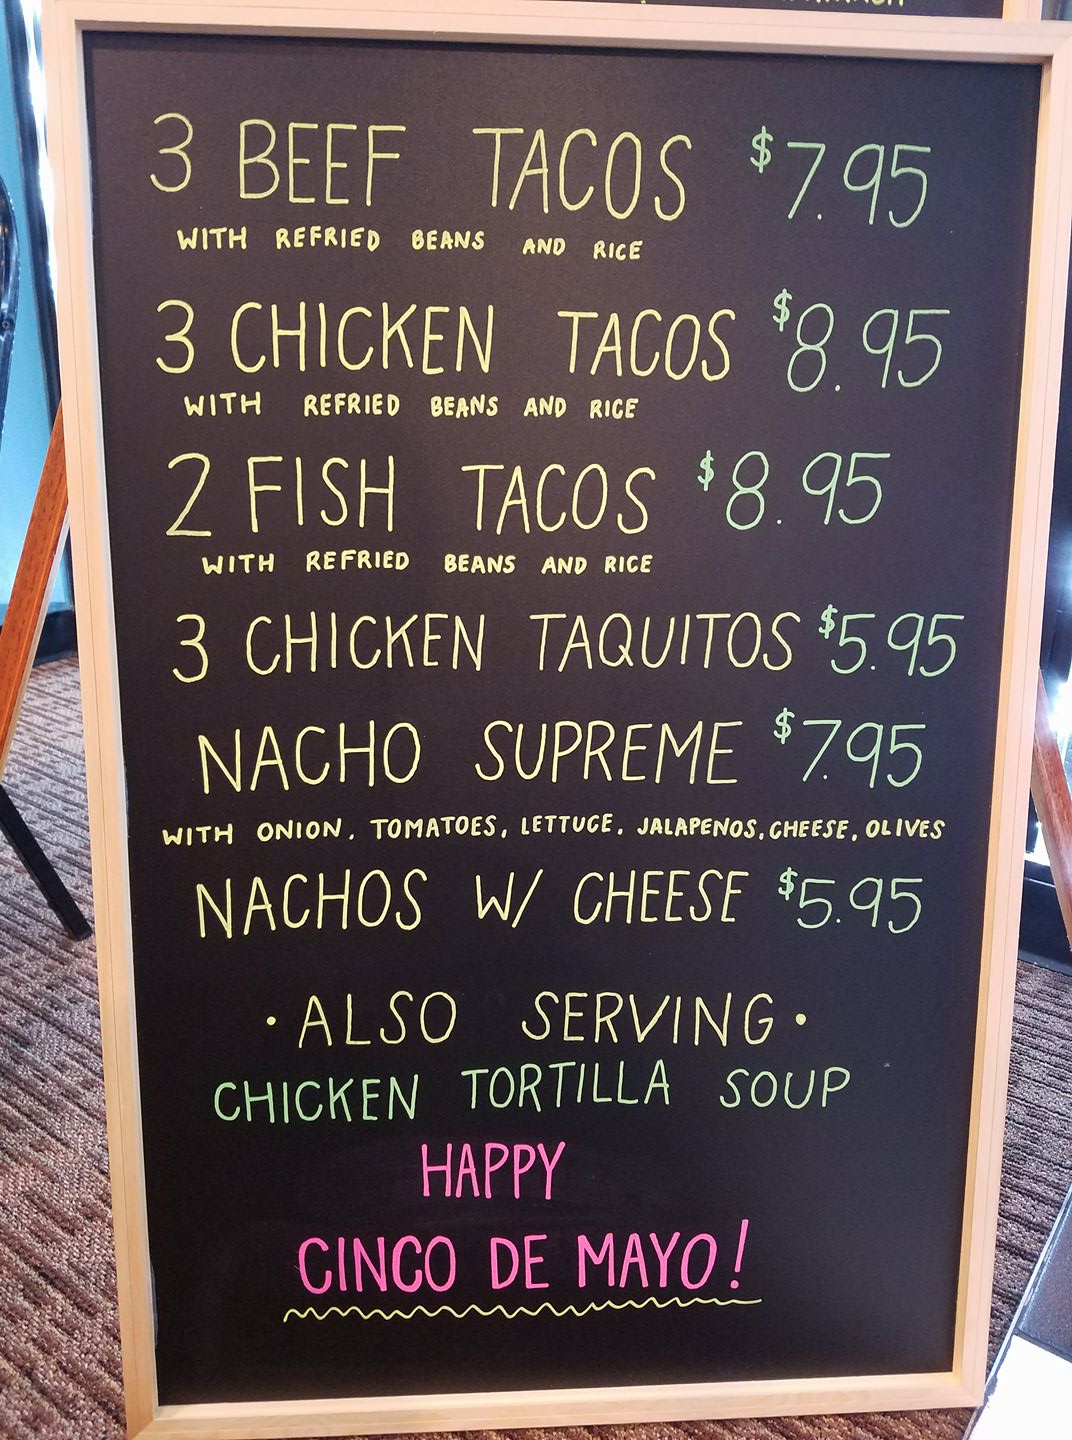 3 BEEF TACOS $7.95
WITH REFRIED BEANS AND RICE
3 CHICKEN TACOS $8.95
WITH REFRIED BEANS AND RICE
2 FISH TACOS $8.95
WITH REFRIED BEANS AND RICE
3 CHICKEN TAQUITOS $5.95
NACHO SUPREME $7.95
WITH ONION, TOMATOES, LETTUCE, JALAPENOS, CHEESE, OLIVES
NACHOS W/ CHEESE $5.95
• ALSO SERVING •
CHICKEN TORTILLA SOUP
HAPPY
CINCO DE MAYO!